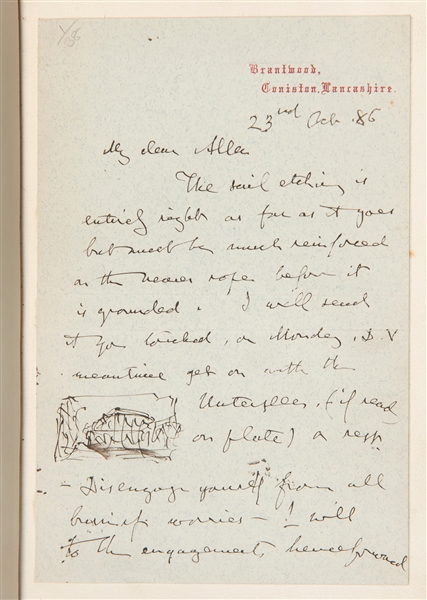 Brantwood,
Coniston, Lancashire.
23nd Oct. 86
My dear Allen
The sail etching is
entirely right as far as it goes
but must be much reinforced
on the nearer rope before it
is grounded. I will send
it you touched, on Monday, D.V
meantime get on with the
(if read
on plate) or
- Disengage yourself from all
business worries - I will
the engagements henceforward